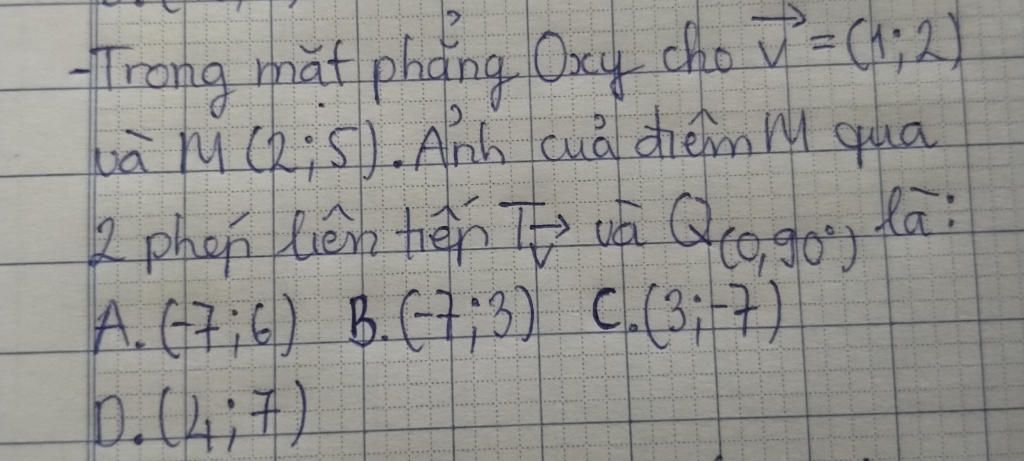 -Trong mặt phẳng Oxy cho v→ = (1; 2)
và M (2; 5). Ảnh của điểm M qua
2 phép liên tiếp Tv→ và Q(0, 90°) là:
A. (-7; 6) B. (-7; 3) C. (3; -7)
D. (4; 7)